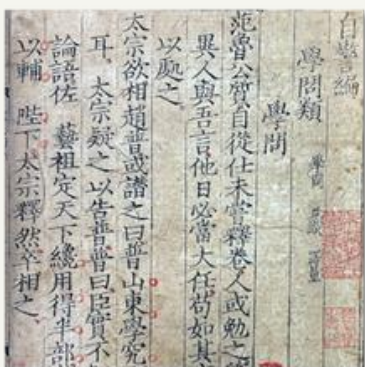 自警編
學問類
學問
范魯公質自從仕未嘗釋卷人或勉之
異人與吾言他日必當大任苟如其
以處之
太宗欲相趙普或譖之曰普山東學究
耳太宗疑之以告普普曰臣實不
論語佐藝祖定天下纔用得半部
以輔陛下太宗釋然卒相之